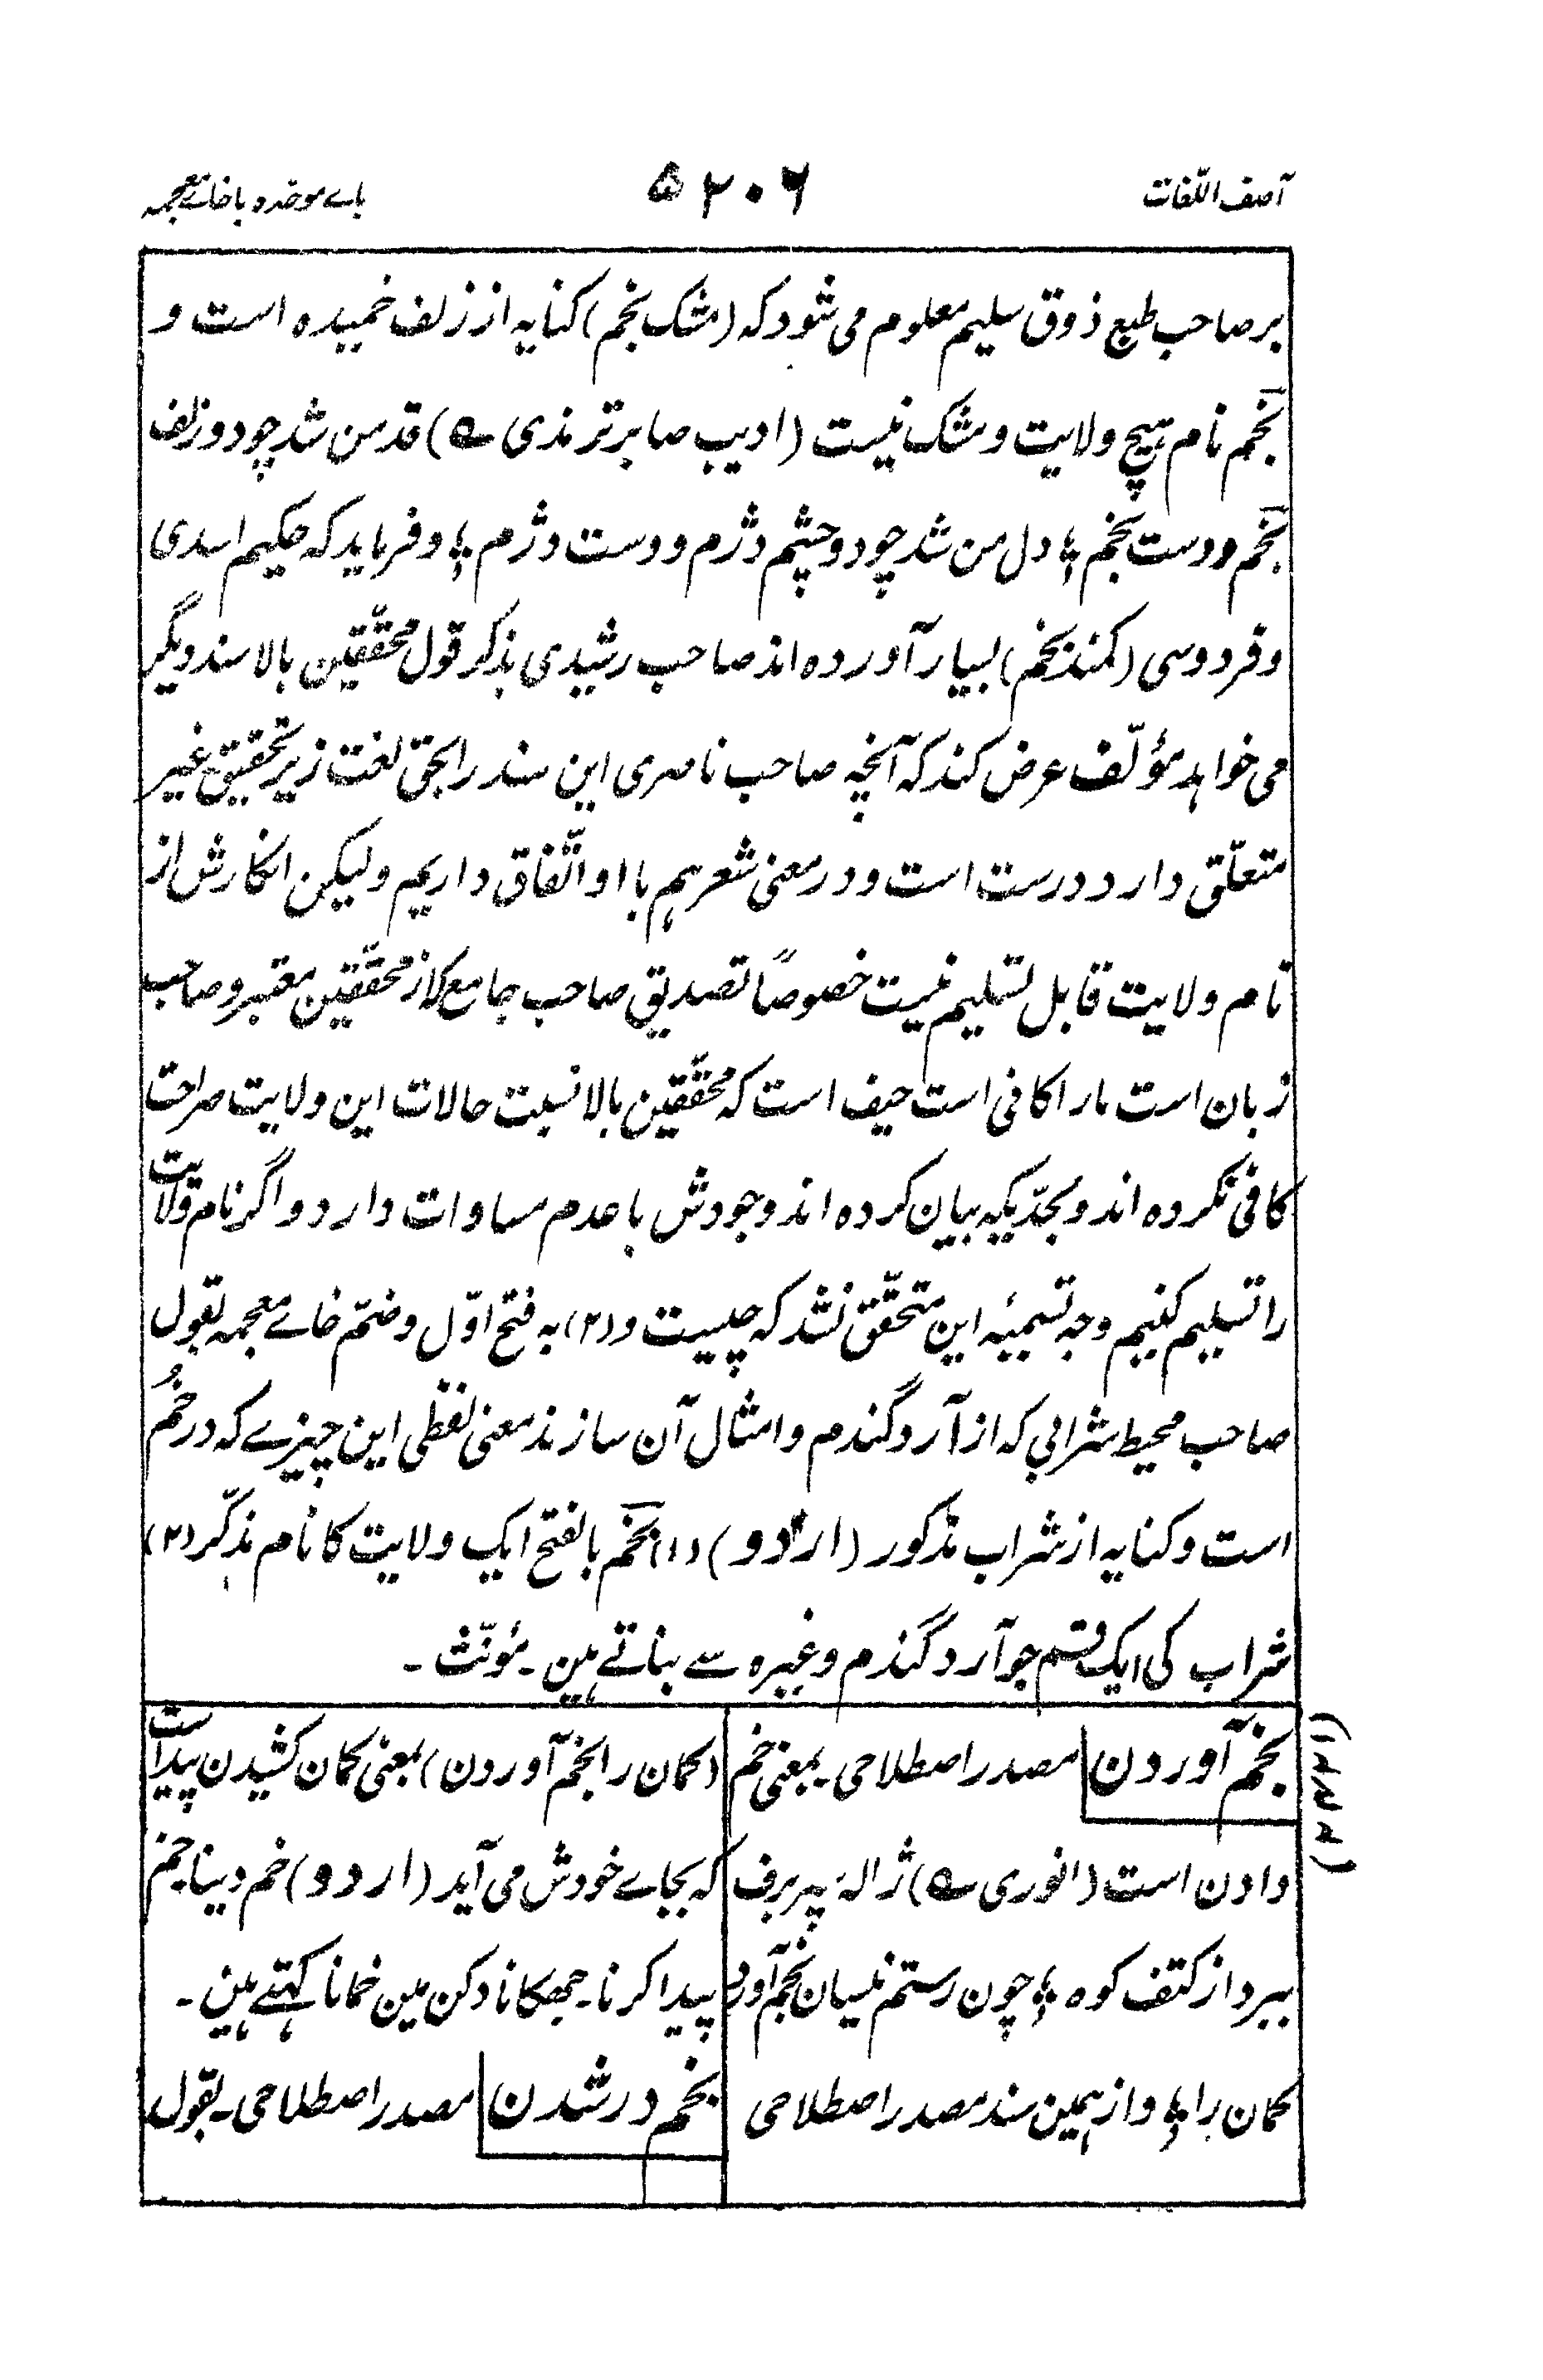 آصف اللّغات
۵۲۰۶
باے موحّدہ باخاے معجمہ
برصاحب طبع ذوق سلیم معلوم می شود کہ (مشک بخم) کنایہ از زلف خمیدہ است و
بخم نام ہیچ ولایت و مشک نیست (ادیب صابر ترمذی ے) قد من شد چو دو زلف
بخم دوست بخم ؛ دل من شد چو دو چشم دژم دوست دژم ؛ و فرماید کہ حکیم اسدی
و فردوسی (کمند بخم) بسیار آوردہ اند صاحب رشیدی بذکر قول محقّقین بالا سند دیگر
می خواہد مؤلّف عرض کند کہ آنچہ صاحب ناصری این سند را بحق لغت زیر تحقیق غیر
متعلّق دارد درست است و در معنی شعر ہم با او اتّفاق داریم و لیکن انکارش از
نام ولایت قابل تسلیم نیست خصوصاً تصدیق صاحب جامع کہ از محقّقین معتبر و صاحب
زبان است مارا کافی است حیف است کہ محقّقین بالا نسبت حالات این ولایت صراحت
کافی نکردہ اند و بحدّیکہ بیان کردہ اند وجودش با عدم مساوات دارد و اگر نام ولایت
را تسلیم کنیم وجہ تسمیۂ این متحقّق نشد کہ چیست و (۲) بہ فتح اوّل و ضمّ خاے معجمہ بقول
صاحب محیط شرابی کہ از آرد گندم و امثال آن سازند معنی لفظی این چیزے کہ در خُم
است و کنایہ از شراب مذکور (اردو) (۱) بخم بالفتح ایک ولایت کا نام مذکّر (۲)
شراب کی ایک قسم جو آرد گندم وغیرہ سے بناتے ہین ۔ مؤنّث ۔
بخم آوردن مصدر اصطلاحی ۔ بمعنی خم
دادن است (انوری ے) ژالہ سپر برف
ببرد از کتف کوہ ؛ چون رستم نیسان بخم آورد
کمان را ؛ و از ہمین سند مصدر اصطلاحی
(کمان را بخم آوردن) بمعنی کمان کشیدن پیدا است
کہ بجاے خودش می آید (اردو) خم دینا ۔ خم
پیدا کرنا ۔ جھکانا دکن مین خمانا کہتے ہین ۔
بخم در شدن مصدر اصطلاحی ۔ بقول